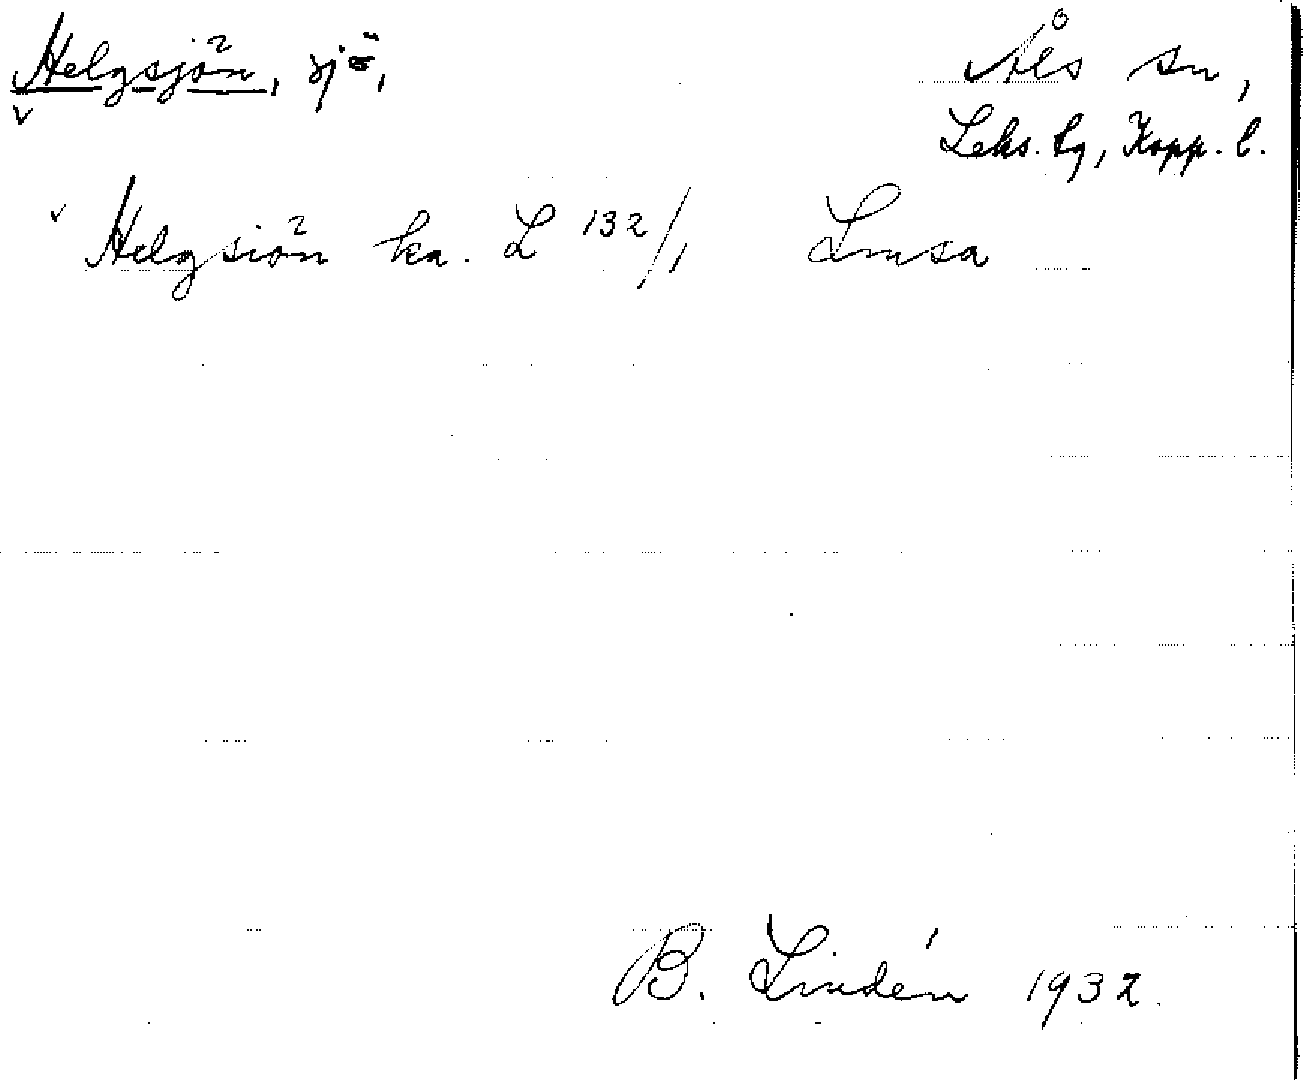 Helgsjön, sjö,
Åls sn,
Leks. tg, Kopp. l.
Helgsiön ka. L 132/1 Lmsa
B. Lindén 1932.